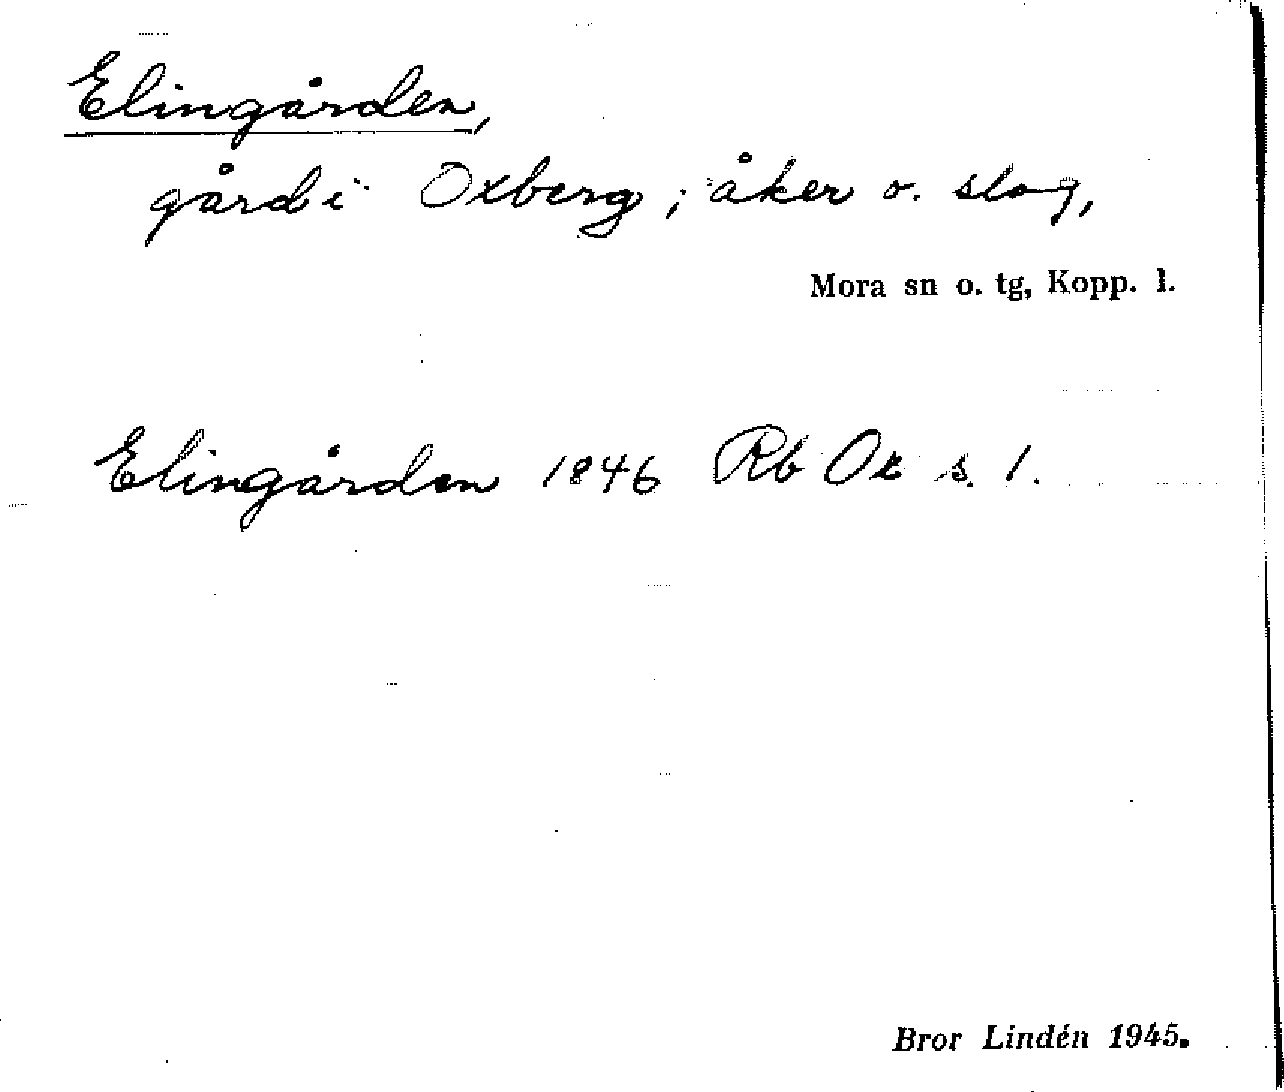 Elingården,
gård i Oxberg; åker o. slog,
Mora sn o. tg, Kopp. l.
Elingården 1846 Rb Ox s. 1.
Bror Lindén 1945.